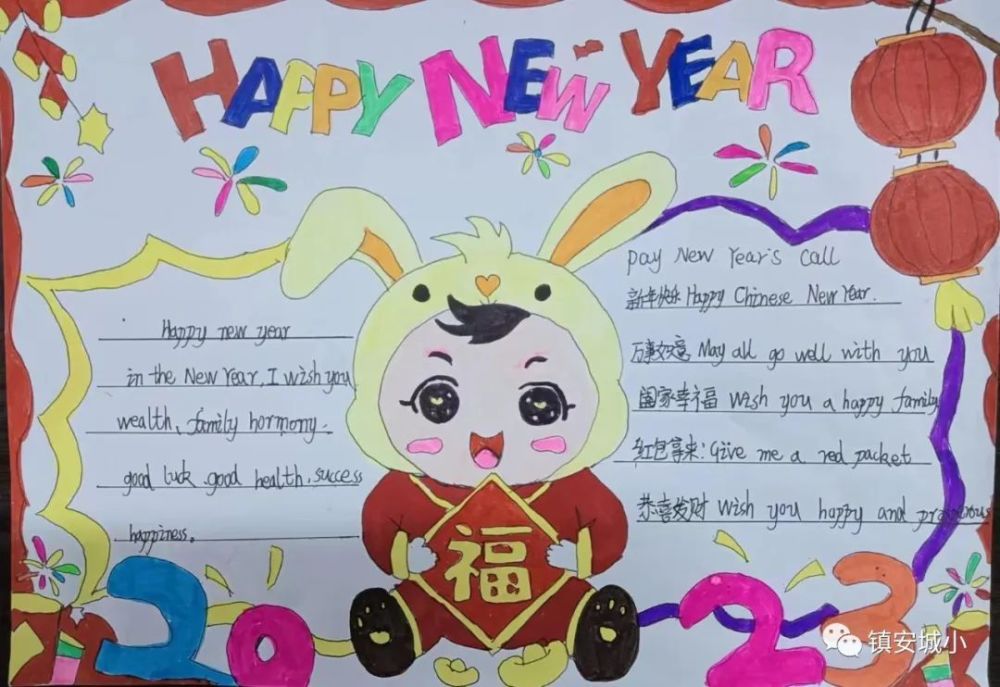 HAPPY NEW YEAR
Happy new year
in the New Year, I wish you
wealth, family hormony.
good luck good health, success
happiness.
pay New Year's call
新年快乐 Happy Chinese New Year.
万事如意 May all go well with you
阖家幸福 wish you a happy family
红包拿来: Give me a red packet
恭喜发财 wish you happy and prosperous
福
2023
镇安城小